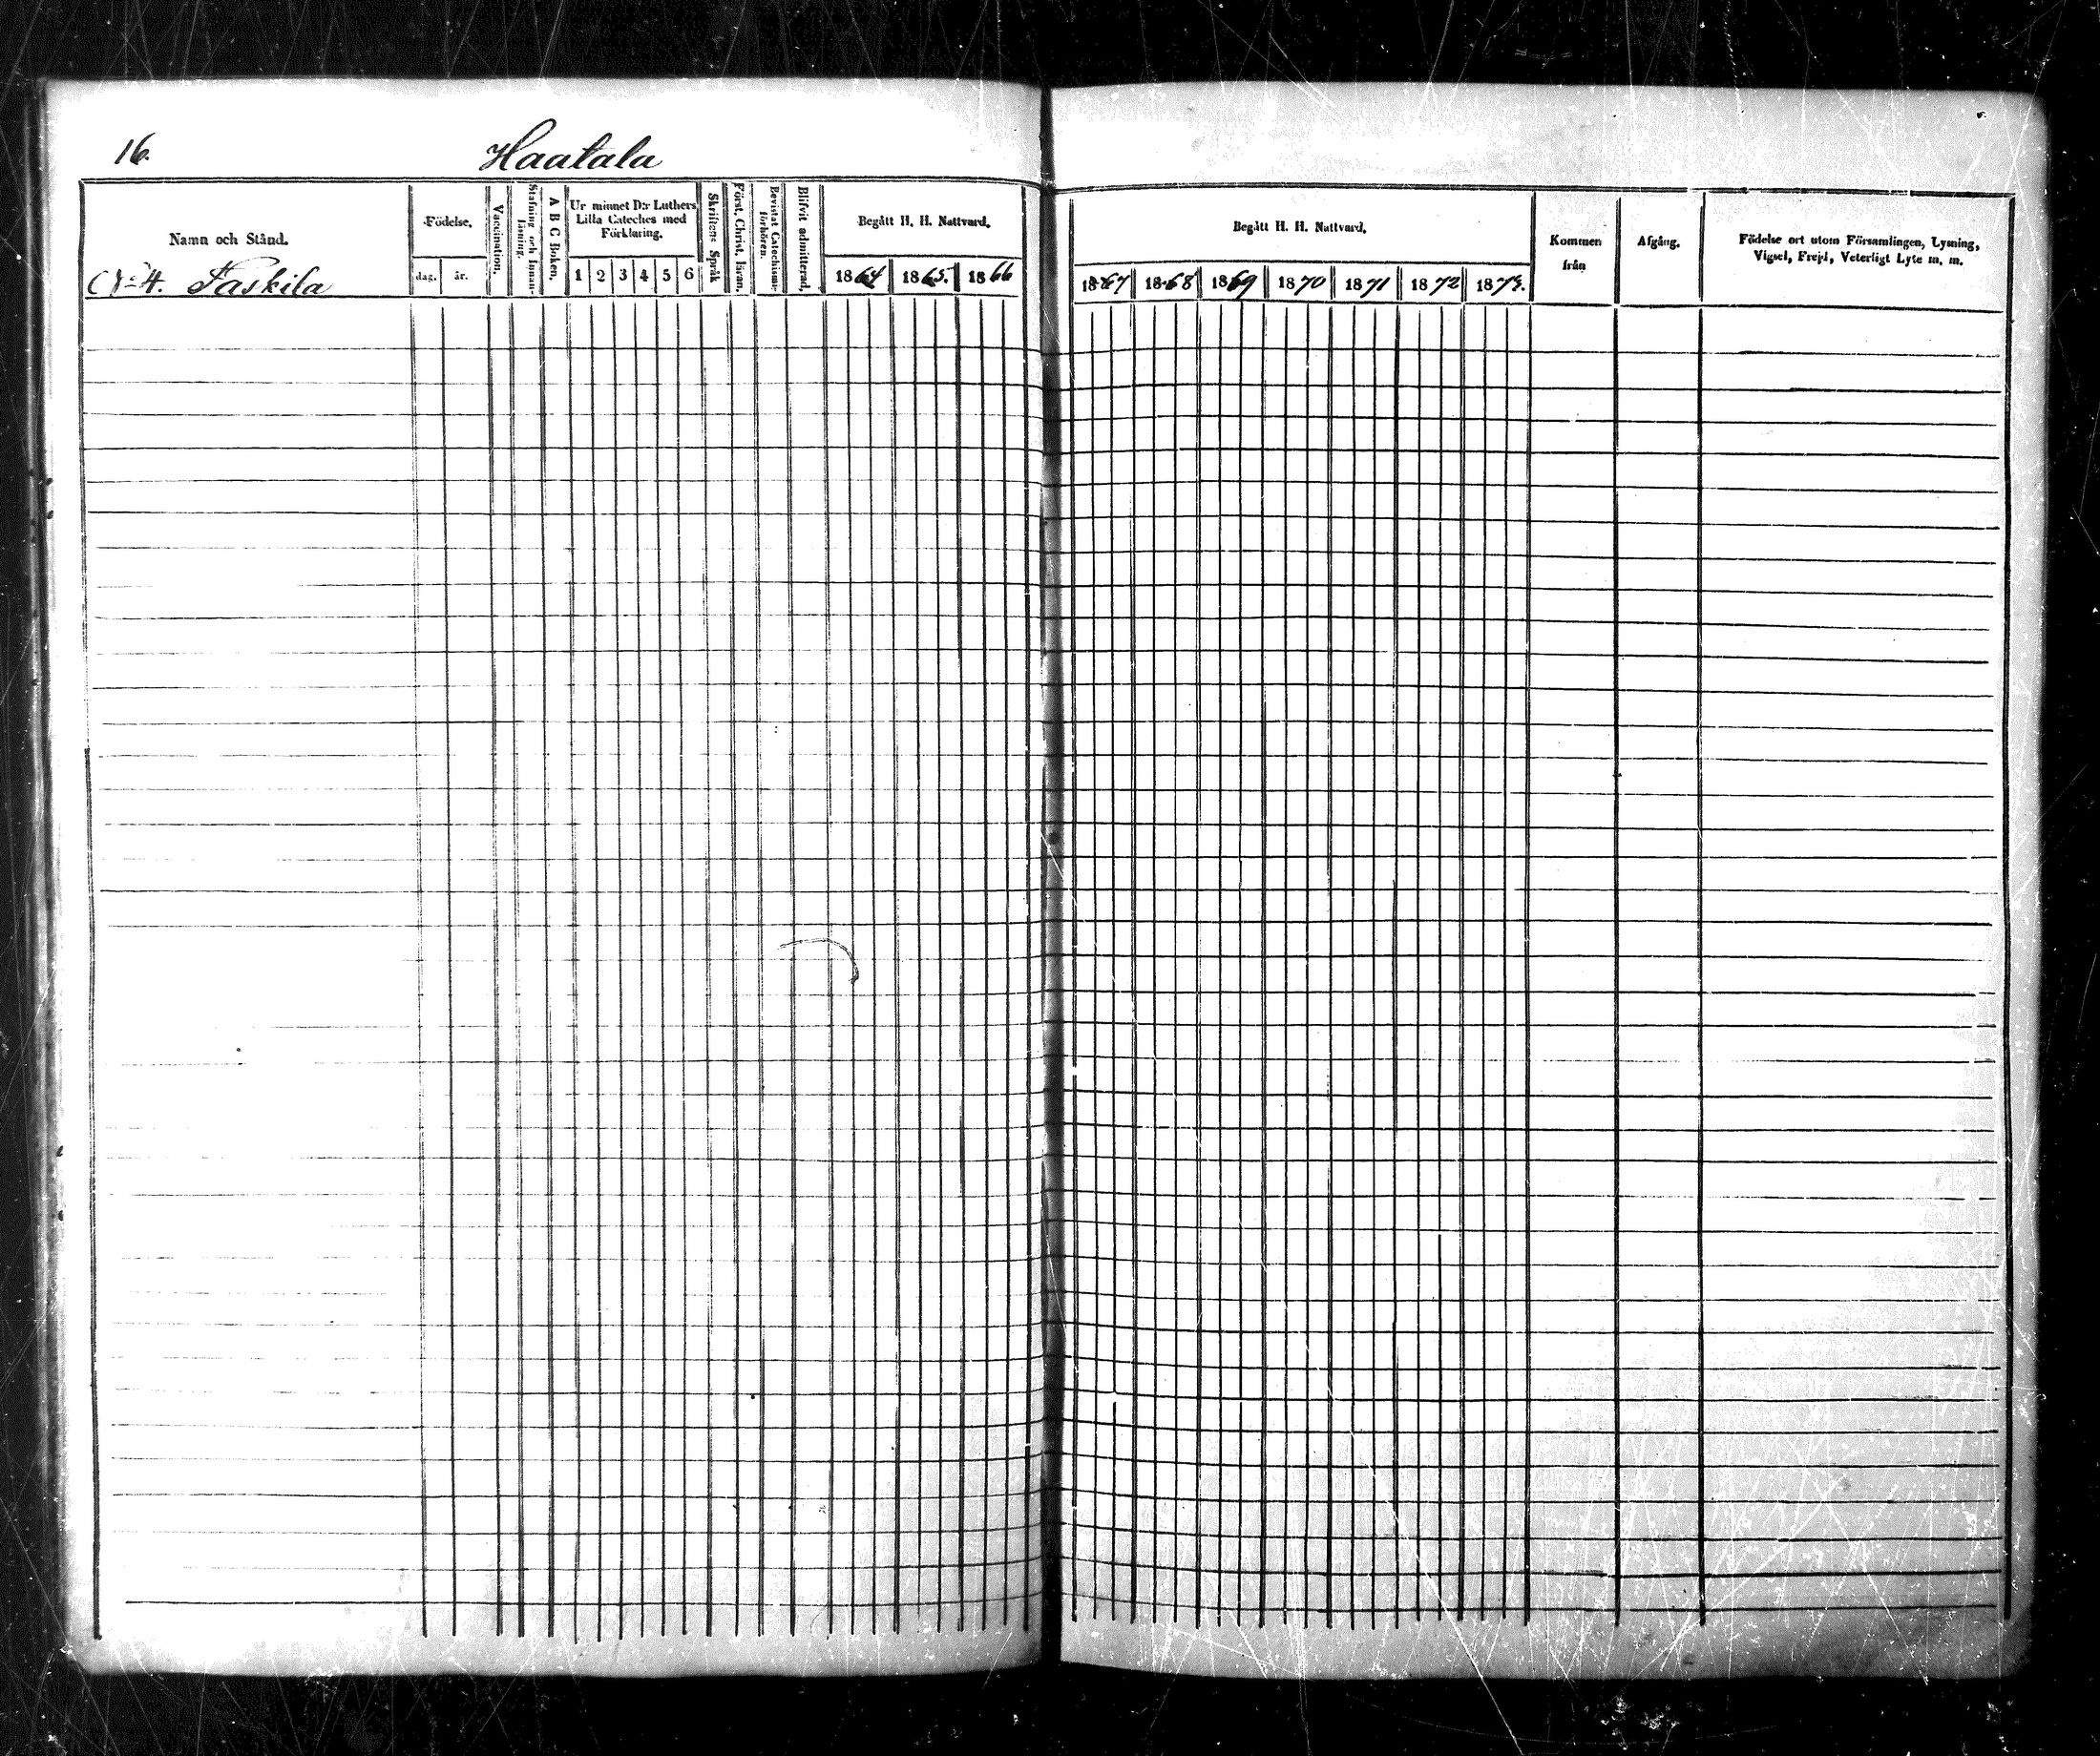 16.
Haatala
Namn och Stånd.
Födelse.
dag. år.
Vaccination.
Stafning och Innan-
läsning.
A B C Boken.
Ur minnet D:r Luthers
Lilla Cateches med
Förklaring.
1 2 3 4 5 6
Skriftens Språk
Först. Christ. läran.
Bevistat Catechismi-
förhören.
Blifvit admitterad.
Begått H. H. Nattvard.
1864 1865. 1866
N:o 4. Paskila
Begått H. H. Nattvard.
1867 1868 1869 1870 1871 1872 1873.
Kommen
från
Afgång.
Födelse ort utom Församlingen, Lysning,
Vigsel, Frejd, Veterligt Lyte m. m.